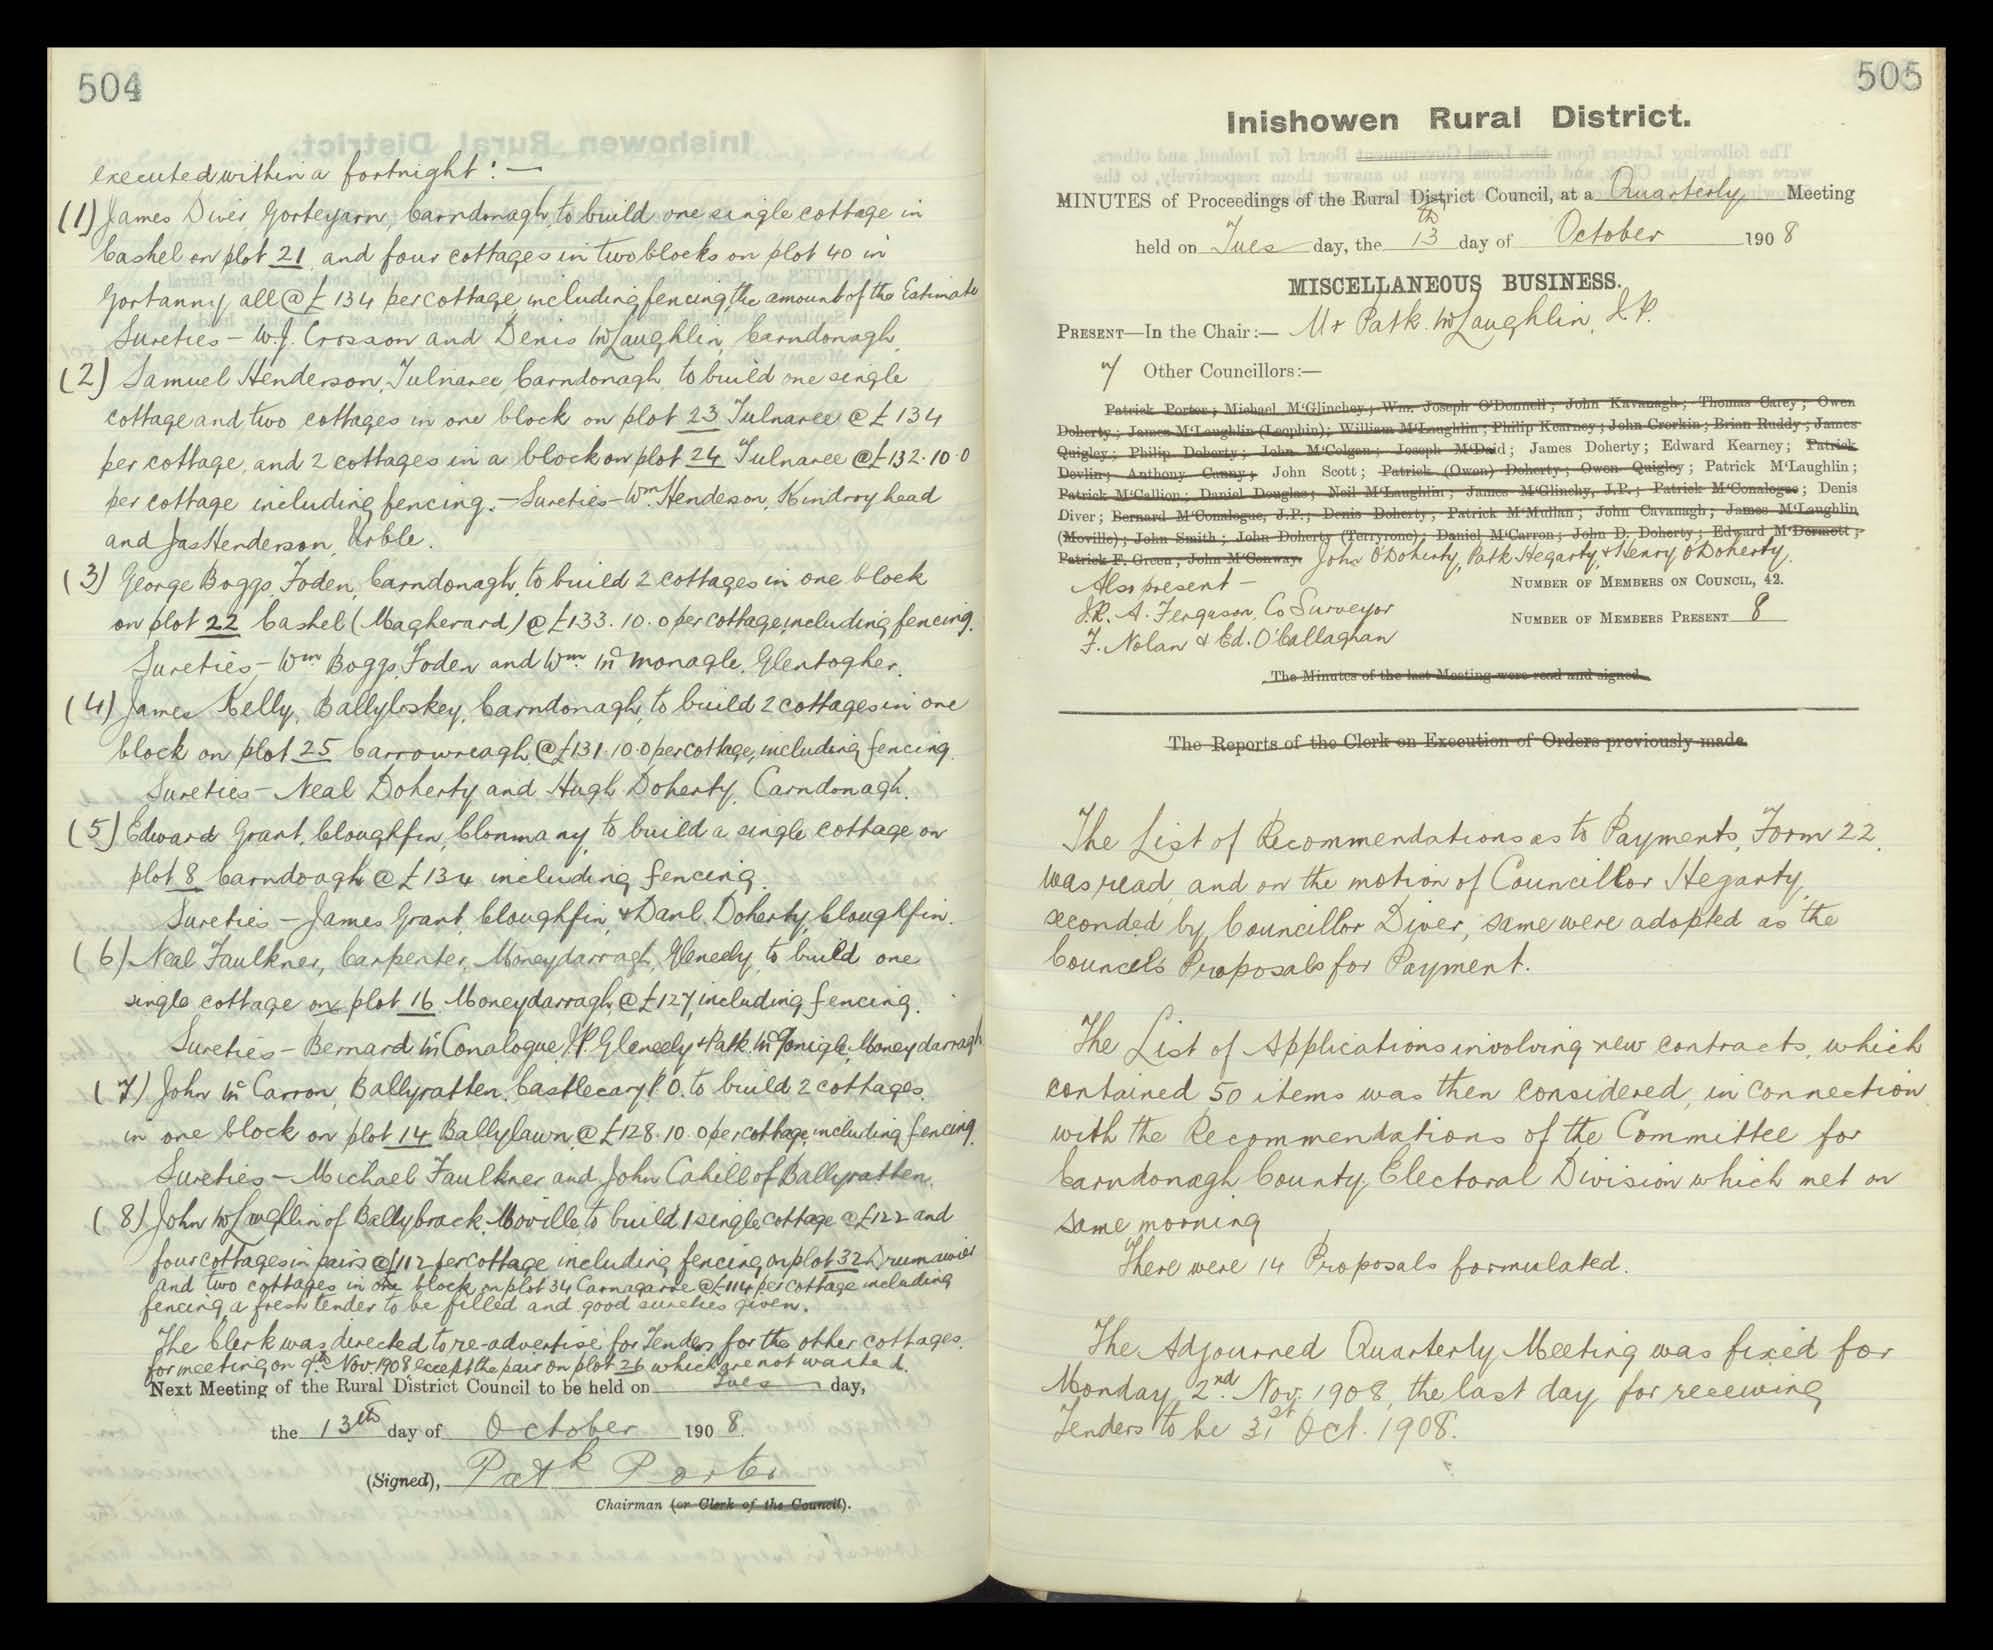 504
executed within a fortnight :—
(1) James Diver, Gorteyarn, Carndonagh, to build one single cottage in
Cashel on plot 21 and four cottages in two blocks on plot 40 in
Gortanny all @ £134 per cottage including fencing, the amount of the Estimate
Sureties — W.J. Crosson and Denis McLaughlin, Carndonagh.
(2) Samuel Henderson, Tulnaree, Carndonagh, to build one single
cottage and two cottages in one block on plot 23 Tulnaree @ £134
per cottage, and 2 cottages in a block on plot 24 Tulnaree @ £132.10.0
per cottage including fencing. — Sureties — Wm. Henderson, Kindroyhead
and Jas Henderson, Urble.
(3) George Boggs, Foden, Carndonagh, to build 2 cottages in one block
on plot 22 Cashel (Magherard) @ £133.10.0 per cottage, including fencing.
Sureties — Wm Boggs, Foden and Wm. McMonagle, Glentogher.
(4) James Kelly, Ballyloskey, Carndonagh, to build 2 cottages in one
block on plot 25 Carrowreagh, @ £131.10.0 per cottage, including fencing.
Sureties — Neal Doherty and Hugh Doherty, Carndonagh.
(5) Edward Grant, Cloughfin, Clonmany, to build a single cottage on
plot 8 Carndoagh @ £134 including fencing.
Sureties — James Grant, Cloughfin, & Danl. Doherty, Cloughfin.
(6) Neal Faulkner, Carpenter, Moneydarragh, Gleneely, to build one
single cottage on plot 16 Moneydarragh, @ £127, including fencing.
Sureties — Bernard McConalogue, J.P. Gleneely & Patk. McGonigle, Moneydarragh
(7) John McCarron, Ballyratten, Castlecary P.O. to build 2 cottages
in one block on plot 14 Ballylawn, @ £128.10.0 per cottage, including fencing.
Sureties — Michael Faulkner and John Cahill of Ballyratten.
(8) John McLaughlin of Ballybrack, Moville, to build 1 single cottage @ £122 and
four cottages in pairs @ £112 per cottage including fencing on plot 32 Drumaweir
and two cottages in one block on plot 34 Carnagarve @ £114 per cottage including
fencing a fresh tender to be filled and good sureties given.
The Clerk was directed to re-advertise for Tenders for the other cottages
for meeting on 9th Nov. 1908, except the pair on plot 26 which are not wanted.
Next Meeting of the Rural District Council to be held on Tues day,
the 13th day of October 1908.
(Signed), Patk Porter
Chairman (or Clerk of the Council).
505
Inishowen Rural District.
MINUTES of Proceedings of the Rural District Council, at a Quarterly Meeting
held on Tues day, the 13th day of October 1908
MISCELLANEOUS BUSINESS.
PRESENT—In the Chair :— Mr Patk. McLaughlin, J.P.
7 Other Councillors:—
Patrick Porter; Michael M'Glinchey; Wm. Joseph O'Donnell; John Kavanagh; Thomas Carey; Owen
Doherty; James M'Laughlin (Leophin); William M'Laughlin; Philip Kearney; John Crorkin; Brian Ruddy; James
Quigley; Philip Doherty; John M'Colgan; Joseph M'Daid; James Doherty; Edward Kearney; Patrick
Devlin; Anthony Canny; John Scott; Patrick (Owen) Doherty; Owen Quigley; Patrick M'Laughlin;
Patrick M'Callion; Daniel Douglas; Neil M'Laughlin; James M'Glinchy, J.P.; Patrick M'Conalogue; Denis
Diver; Bernard M'Conalogue, J.P.; Denis Doherty; Patrick M'Mullan; John Cavanagh; James M'Laughlin
(Moville); John Smith; John Doherty (Terryrone); Daniel M'Carron; John D. Doherty; Edward M'Dermott;
Patrick F. Green; John M'Conway. John O'Doherty, Patk Hegarty, & Henry O'Doherty.
Also present —
NUMBER OF MEMBERS ON COUNCIL, 42.
J.R. A. Ferguson, Co Surveyor
NUMBER OF MEMBERS PRESENT 8
F. Nolan & Ed. O'Callaghan
The Minutes of the last Meeting were read and signed.
The Reports of the Clerk on Execution of Orders previously made.
The List of Recommendations as to Payments, Form 22,
was read, and on the motion of Councillor Hegarty,
seconded by Councillor Diver, same were adopted as the
Council's Proposals for Payment.
The List of Applications involving new contracts, which
contained 50 items was then considered, in connection
with the Recommendations of the Committee for
Carndonagh County Electoral Division which met on
same morning
There were 14 Proposals formulated.
The Adjourned Quarterly Meeting was fixed for
Monday, 2nd Nov. 1908, the last day for receiving
Tenders to be 31st Oct. 1908.